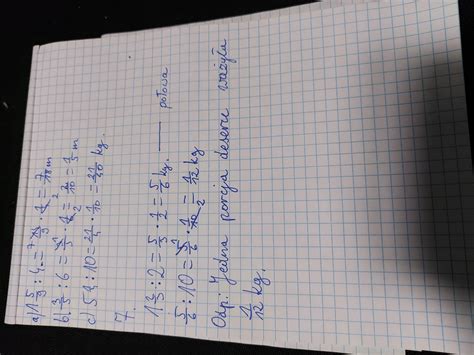 a) 1 5/9 : 4 = 14/9 · 1/4 = 7/18 m
b) : 6 = = 1/5 m
c) 5 1/4 : 10 = 21/4 · 1/10 = 21/40 kg.
7.
1 2/3 : 2 = 5/3 · 1/2 = 5/6 kg. — połowa
5/6 : 10 = 5/6 · 1/10 = 1/12 kg
Odp. Jedna porcja deseru ważyła
1/12 kg.